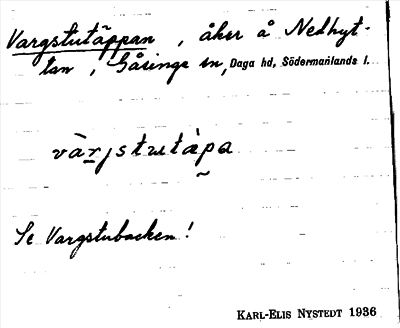 Vargstutäppan, åker å Nedhyt-
tan, Gåsinge sn, Daga hd, Södermanlands l.
vàrjstutàpa
Se Vargstubacken!
KARL-ELIS NYSTEDT 1936